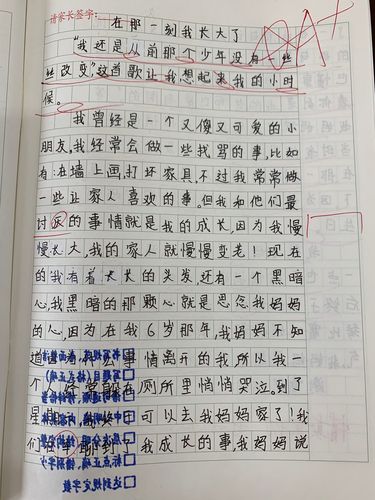 请家长签字:
在那一刻我长大了
"我还是从前那个少年没有一些
丝改变",这首歌让我想起来我的小时
候。
我曾经是一个又傻又可爱的小
朋友,我经常会做一些找骂的事,比如
有:在墙上画,打坏家具,不过我常常做
一些让家人喜欢的事。但我和他们最
讨厌的事情就是我的成长,因为我慢
慢长大,我的家人就慢慢变老!现在
的我有着长长的头发,还有一个黑暗
心,我黑暗的那颗心就是思念我妈妈
的人,因为在我6岁那年,我妈妈不知
道因为什么事情离开的我,所以我一
个人经常躲在厕所里悄悄哭泣。到了
星期 我终于可以去我妈妈家了!我
们在车聊到了我成长的事,我妈妈说
A+